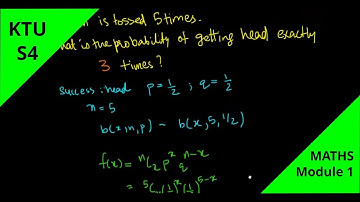 KTU
S4
is tossed 5 times.
is the probability of getting head exactly
3 times?
success: head p = 1/2 ; q = 1/2
n = 5
b(x,n,p) ~ b(x,5,1/2)
f(x) = ⁿC₂ pˣ qⁿ⁻ˣ
= ⁵C (1/2)ˣ (1/2)⁵⁻ˣ
MATHS
Module 1